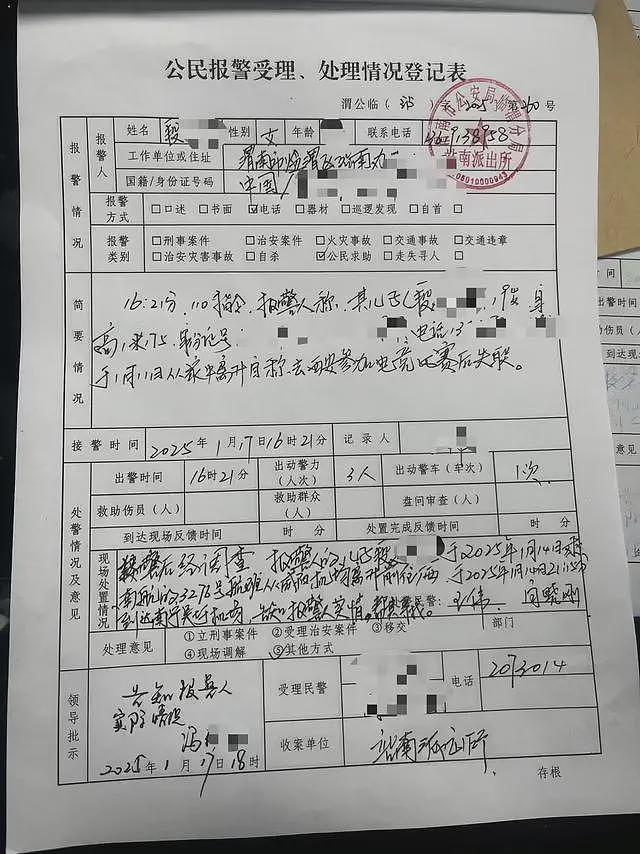 公民报警受理、处理情况登记表
渭公临（站）字 2025 第 260 号
渭南市公安局临渭分局
站南派出所
报警情况
报警人
姓名 性别 女 年龄 联系电话
工作单位或住址 渭南市临渭区站南办
国籍/身份证号码 中国
报警方式 □口述 □书面 ☑电话 □器材 □巡逻发现 □自首 □
报警类别 □刑事案件 □治安案件 □火灾事故 □交通事故 □交通违章
□治安灾害事故 □自杀 ☑公民求助 □走失寻人 □
简要情况
16:21分，110指令，报警人称，其儿子 19岁，身
高1米75，身份证号 电话13
于1月11日从家中离开自称去西安参加电竞比赛后失联。
接警时间 2025年1月17日16时21分 记录人
处警情况及意见
出警时间 16时21分 出动警力（人次） 3人 出动警车（车次） 1次
救助伤员（人） 救助群众（人） 盘问审查（人）
到达现场反馈时间 时 分 处置完成反馈时间 时 分
现场处置情况
接警后经调查 报警人的儿子 于2025年1月14日乘
南航 3276号航班从咸阳机场离开 于2025年1月14日21时15分
到达南宁吴圩机场，告知报警人实情。 民警：王伟
处理意见 ①立刑事案件 ②受理治安案件 ③移交 部门
④现场调解 ⑤其他方式
领导批示
告知报警人
实际情况
冯
2025年1月17日18时
受理民警 电话 2073014
收案单位 站南派出所
存根
时间
出警时间
救助伤员（
到达